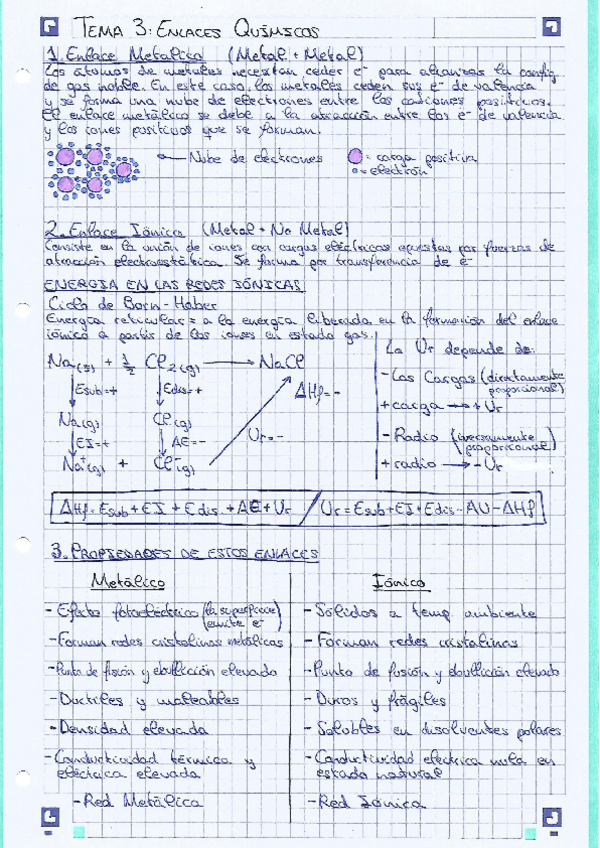 TEMA 3: ENLACES QUÍMICOS
1. Enlace Metálico (Metal + Metal)
Los átomos de metales necesitan ceder e⁻ para alcanzar la config.
de gas noble. En este caso, los metales ceden sus e⁻ de valencia
y se forma una nube de electrones entre los cationes positivos.
El enlace metálico se debe a la atracción entre los e⁻ de valencia
y los iones positivos que se forman.
← Nube de electrones = carga positiva
= electrón
2. Enlace Iónico (Metal + No Metal)
Consiste en la unión de iones con cargas eléctricas opuestas por fuerzas de
atracción electroestática. Se forma por transferencia de e⁻
ENERGIA EN LAS REDES IÓNICAS
Ciclo de Born-Haber
Energía reticular = a la energía liberada en la formación del enlace
iónico a partir de los iones en estado gas.
Na(s) + 1/2 Cl2(g) → NaCl
Esub=+ Edis=+ ΔHf=-
Na(g) Cl(g)
EI=+ AE=- Ur=-
Na⁺(g) + Cl⁻(g)
La Ur depende de:
- Las Cargas (directamente proporcional)
+ carga → + Ur
- Radio (inversamente proporcional)
+ radio → - Ur
ΔHf = Esub + EI + Edis + AE + Ur / Ur = Esub + EI + Edis - AU - ΔHf
3. PROPIEDADES DE ESTOS ENLACES
Metálico
- Efecto fotoeléctrico (la superficie emite e⁻)
- Forman redes cristalinas metálicas
- Punto de fusión y ebullición elevado
- Ductiles y maleables
- Densidad elevada
- Conductividad térmica y
eléctrica elevada
- Red Metálica
Iónico
- Sólidos a temp ambiente
- Forman redes cristalinas
- Punto de fusión y ebullición elevado
- Duros y frágiles
- Solubles en disolventes polares
- Conductividad eléctrica nula en
estado natural
- Red Iónica